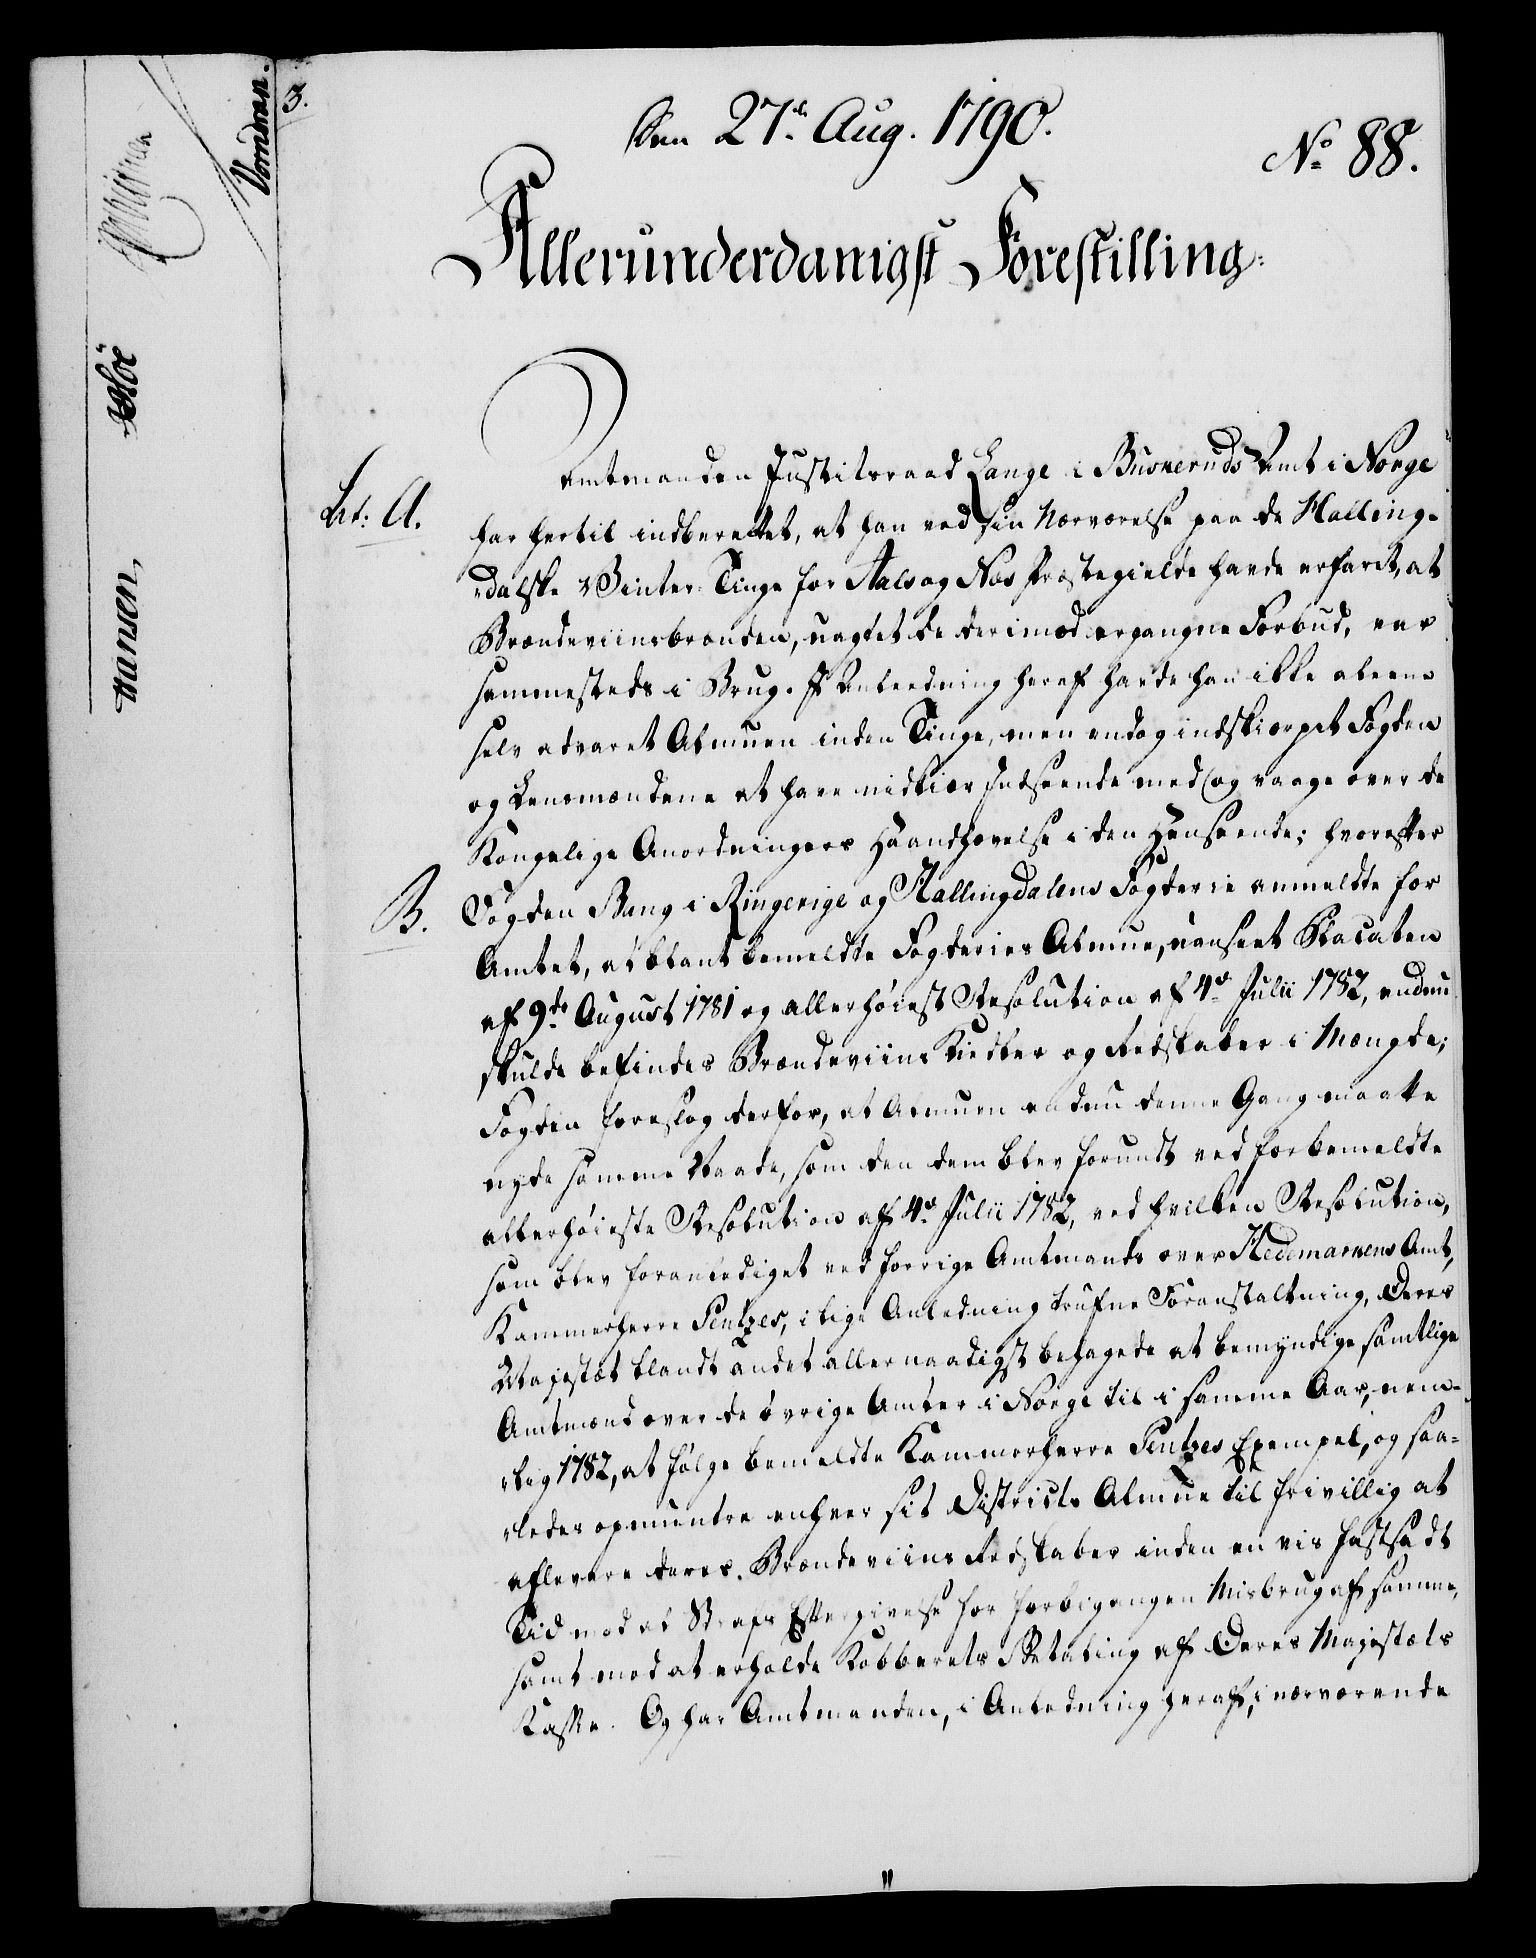 3.
Den 27de Aug. 1790.
No 88.
Allerunderdanigst Forestilling.
Lit: A.
Amtmanden Justitsraad Lange i Buskeruds Amt i Norge
har hertil indberettet, at han ved sin Nærværelse paa de Halling-
dalske Vinter-Tinge for Aals og Næs Præstegielde havde erfaret, at
Brændeviinsbrænden, uagtet de derimod ergangne Forbud, var
sammesteds i Brug. I Anledning heraf havde han ikke aleene
selv advaret Almuen inden Tinge, men endog indskiærpet Fogden
og Lensmændene at have nidkier Indseende med og vaage over de
Kongelige Anordningers Haandhævelse i den Henseende; hvorefter
B.
Fogden Bang i Ringerige og Hallingdalens Fogderie anmeldte for
Amtet, at blant bemeldte Fogderies Almue, uanseet Placaten
af 9de August 1781 og allerhøiest Resolution af 4de Julii 1782, endnu
skulde befindes Brændeviins Kiedler og Redskaber i Mængde;
Fogden foreslog derfor, at Almuen endnu denne Gang maatte
nyde samme Naade, som den dem blev forundt ved forbemeldte
allerhøieste Resolution af 4de Julii 1782, ved hvilken Resolution,
som blev foranlediget ved forrige Amtmands over Hedemarkens Amt,
Kammerherre Sentzes, i lige Anledning trufne Foranstaltning, Deres
Majestæt blandt andet allernaadigst behagede at bemyndige samtlige
Amtmænd over de øvrige Amter i Norge til i samme Aar, nem-
lig 1782, at følge bemeldte Kammerherre Sentzes Exempel, og saa-
ledes opmuntre enhver sit Districts Almue til frivillig at
aflevere deres Brændeviins Redskaber inden en vis fastsadt
Tid mod al Strafs Eftergivelse for forbigangen Misbrug af samme,
samt mod at erholde Kobberets Betaling af Deres Majestæts
Kasse. Og har Amtmanden, i Anledning heraf, i nærværende
Hansen,